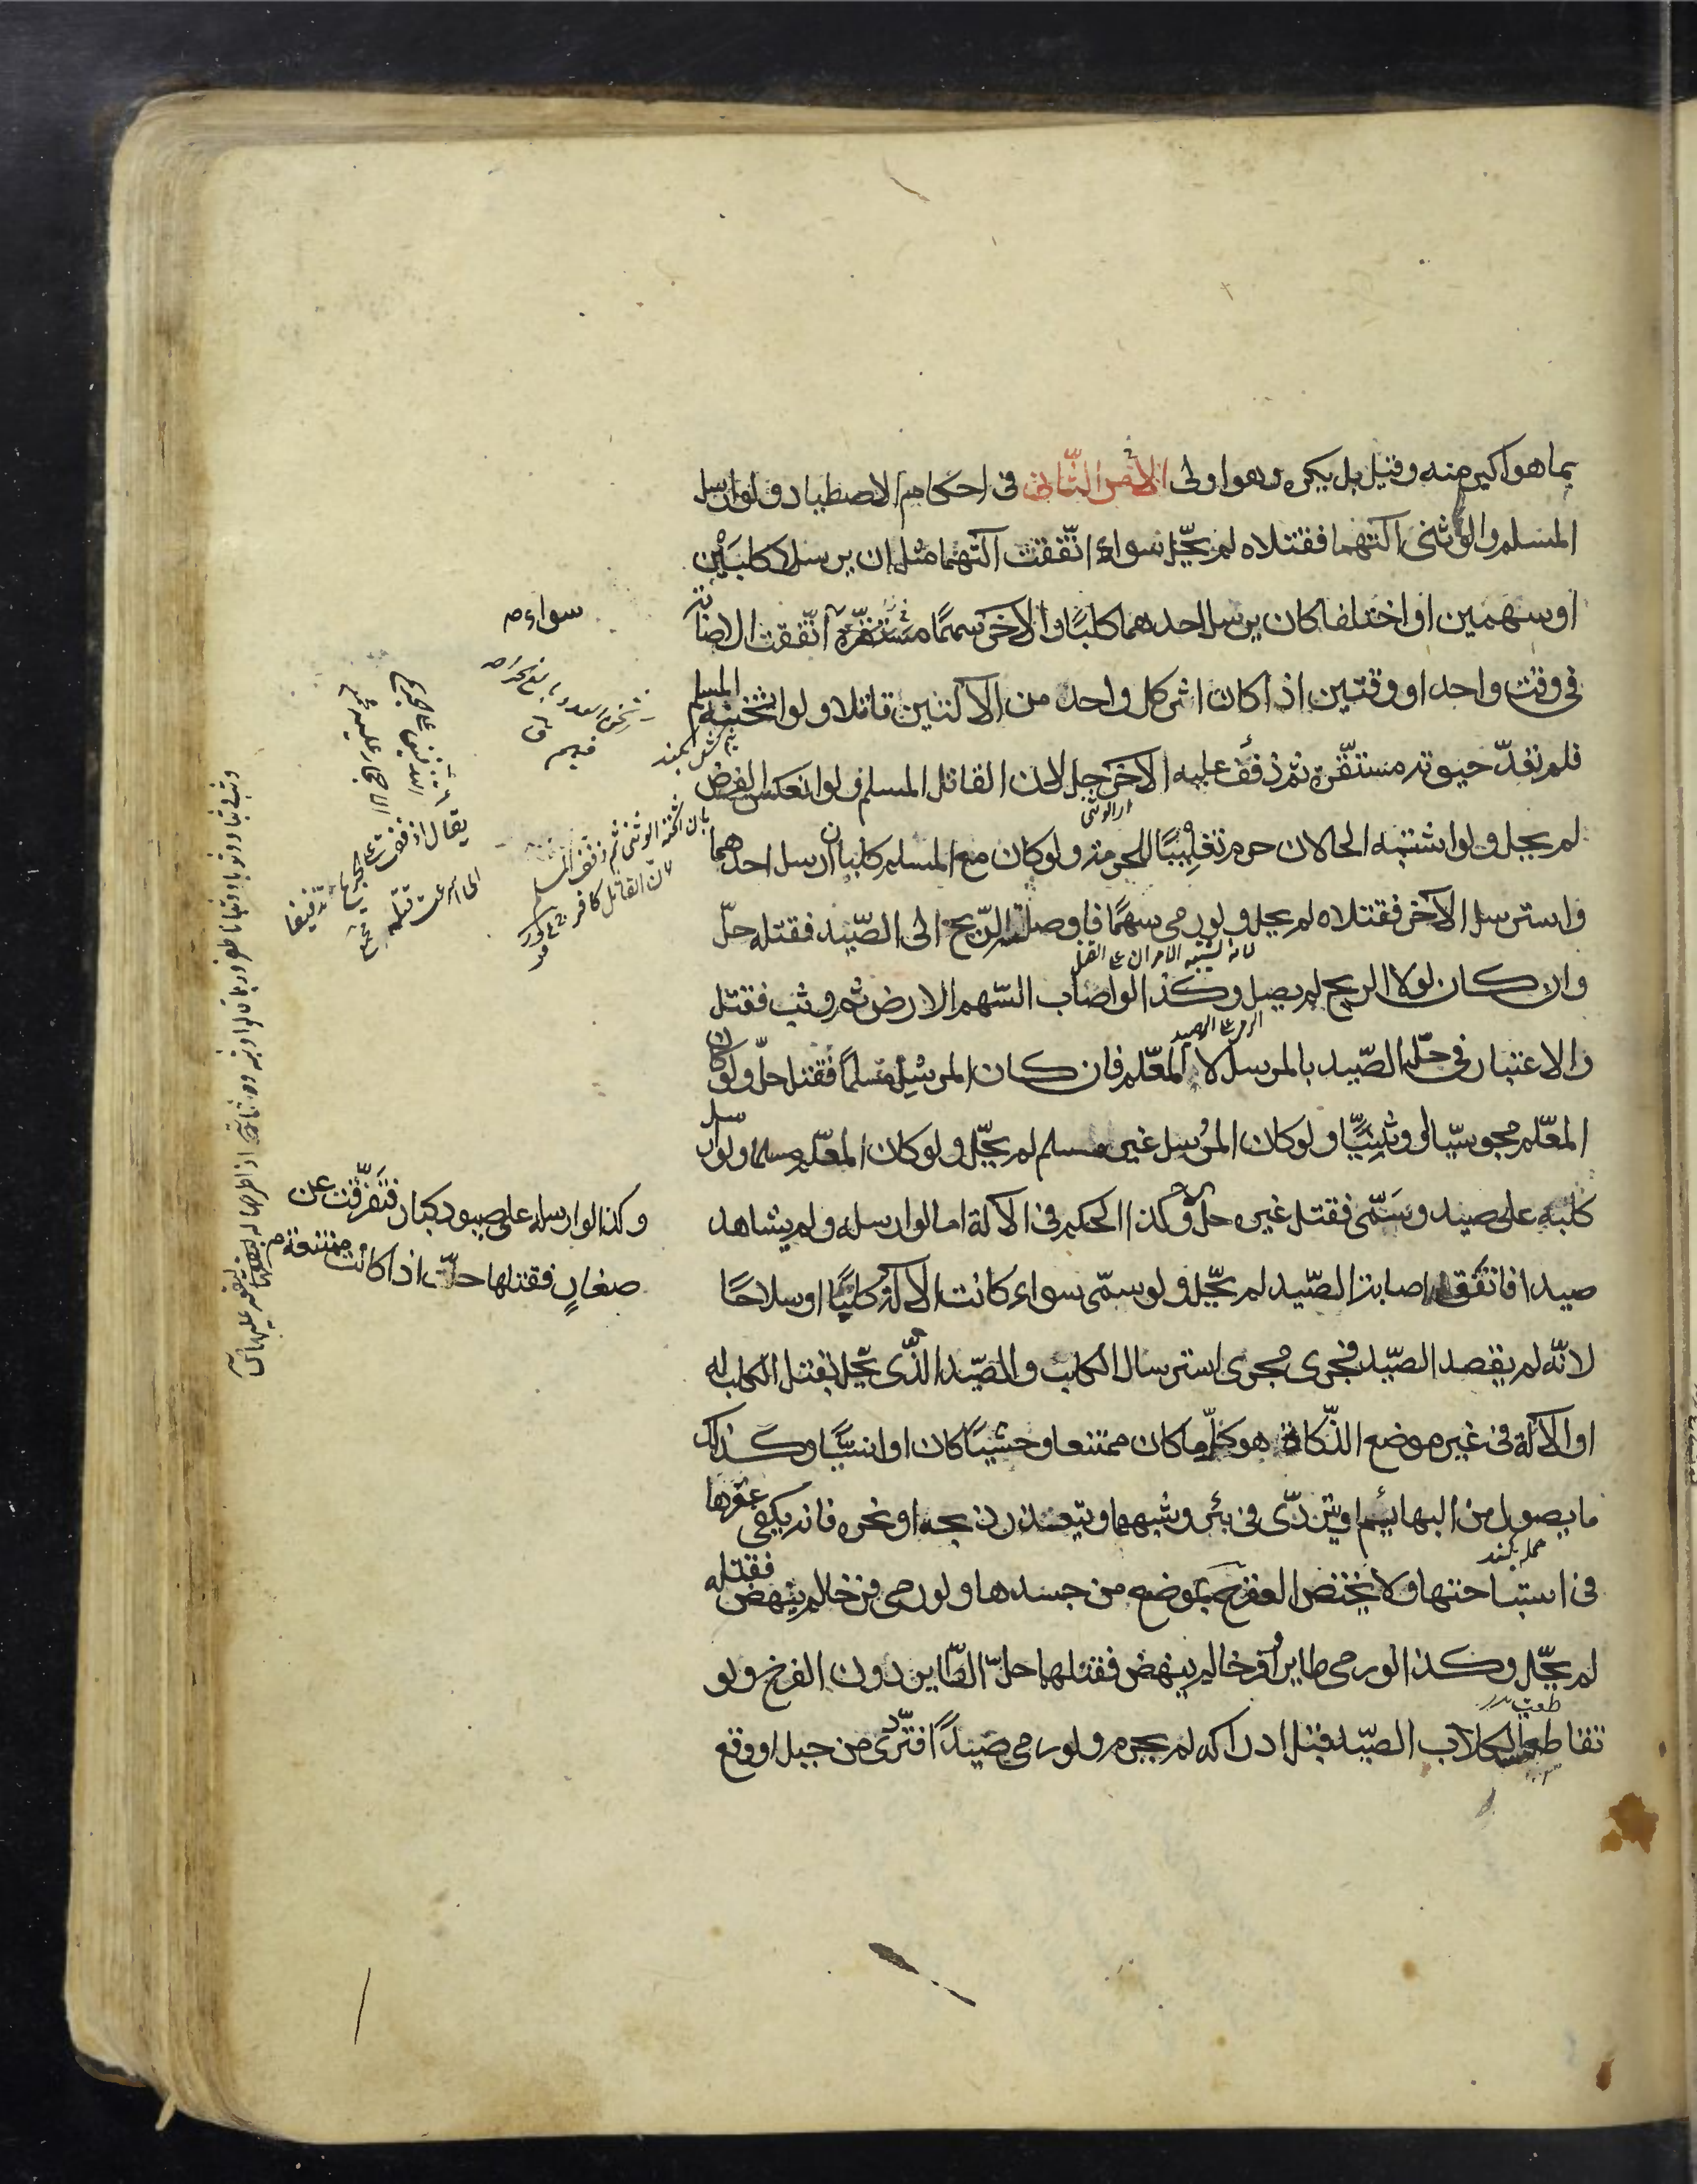 بما هو اكبر منه وقيل بل يكره وهو اولى الامر الثّانى فى احكام الاصطياد فلو ارسل
المسلم والوثنى آلتهما فقتلاه لم يحّل سواء اتّفقت آلتهما مثل ان يرسلا كلبَين
او سهمين او اختلفا كان يرسل احدهما كلبًا والآخر سهمًا سواء اتّفقت الاصابة
فى وقت واحد او وقتين اذا كان اثر كل واحد من الآلتين قاتلا ولو اثخنه المسلم
فلم تعد حيوته مستقّرة ثم ذفّف عليه الآخر حل لان القاتل المسلم ولو انعكس الفرض
لم يحل ولو اشتبه الحالان حرم تغليبًا للحرمة ولو كان مع المسلم كلبان ارسل احدهما
واسترسل الآخر فقتلاه لم يحل ولو رمى سهمًا فاوصلته الرّيح الى الصّيد فقتله حلّ
وان كان لولا الريح لم يصل وكذا لو اصاب السّهم الارض ثم وثب فقتل
والاعتبار فى حلّ الصّيد بالمرسل لا المعّلم فان كان المرسِل مسلمًا فقتل حلّ ولو كان
المعّلم مجوسيّا او وثنيًّا ولو كان المرسل غير مسلم لم يحّل ولو كان المعّلم مسلما ولو ارسل
كلبه على صيد وسَمّى فقتل غيره حل وكذا الحكم فى الآلة اما لو ارسله ولم يشاهد
صيدا فاتفق اصابة الصّيد لم يحّل ولو سمّى سواء كانت الآلة كلبًا او سلاحًا
لانّه لم يقصد الصّيد فجرى مجرى استرسال الكلب والصّيد الذّى يحّل بقتل الكلب له
او الآلة فى غير موضع الذّكاة هو كلّ ما كان ممتنعا وحشيًا كان او انسيًّا وكذلك
ما يصول من البهائم او يتردّى فى بئر وشبهها ويتعذر ذبحه او نحره فانه يكفى عقرها
فى استباحتها ولا يختص العقر بموضع من جسدها ولو رمى فرخا لم ينهض فقتله
لم يحّل وكذا لو رمى طايرا وفرخا لم ينهض فقتلهما حلّ الطّاير دون الفرخ ولو
تقاطع الكلاب الصّيد قبل ادراكه لم يحرم ولو رمى صيدًا فتردّى من جبل او وقع
سواء
اى الوثنى
لانه اشتبه الامران
بان اثخنه الوثنى ثم ذفف المسلم
لان القاتل كافر
يقال اذففت على الجريح تذفيفا
اى اسرعت قتله
وكذا لو ارسله على صيود كبار فتفرّقت عن
صغارٍ فقتلها حلّت اذا كانت ممتنعة
حمله كند